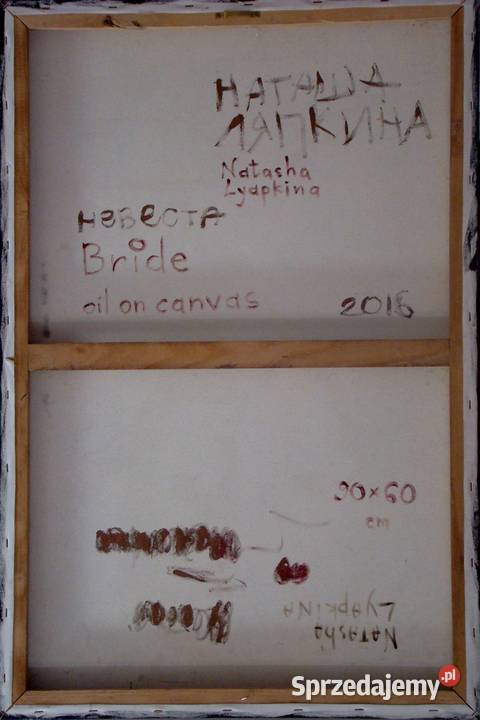 НАТАША
ЛЯПКИНА
Natasha
Lyapkina
НЕВЕСТА
Bride
oil on canvas 2016
90×60
cm
Natasha
Lyapkina
Sprzedajemy.pl